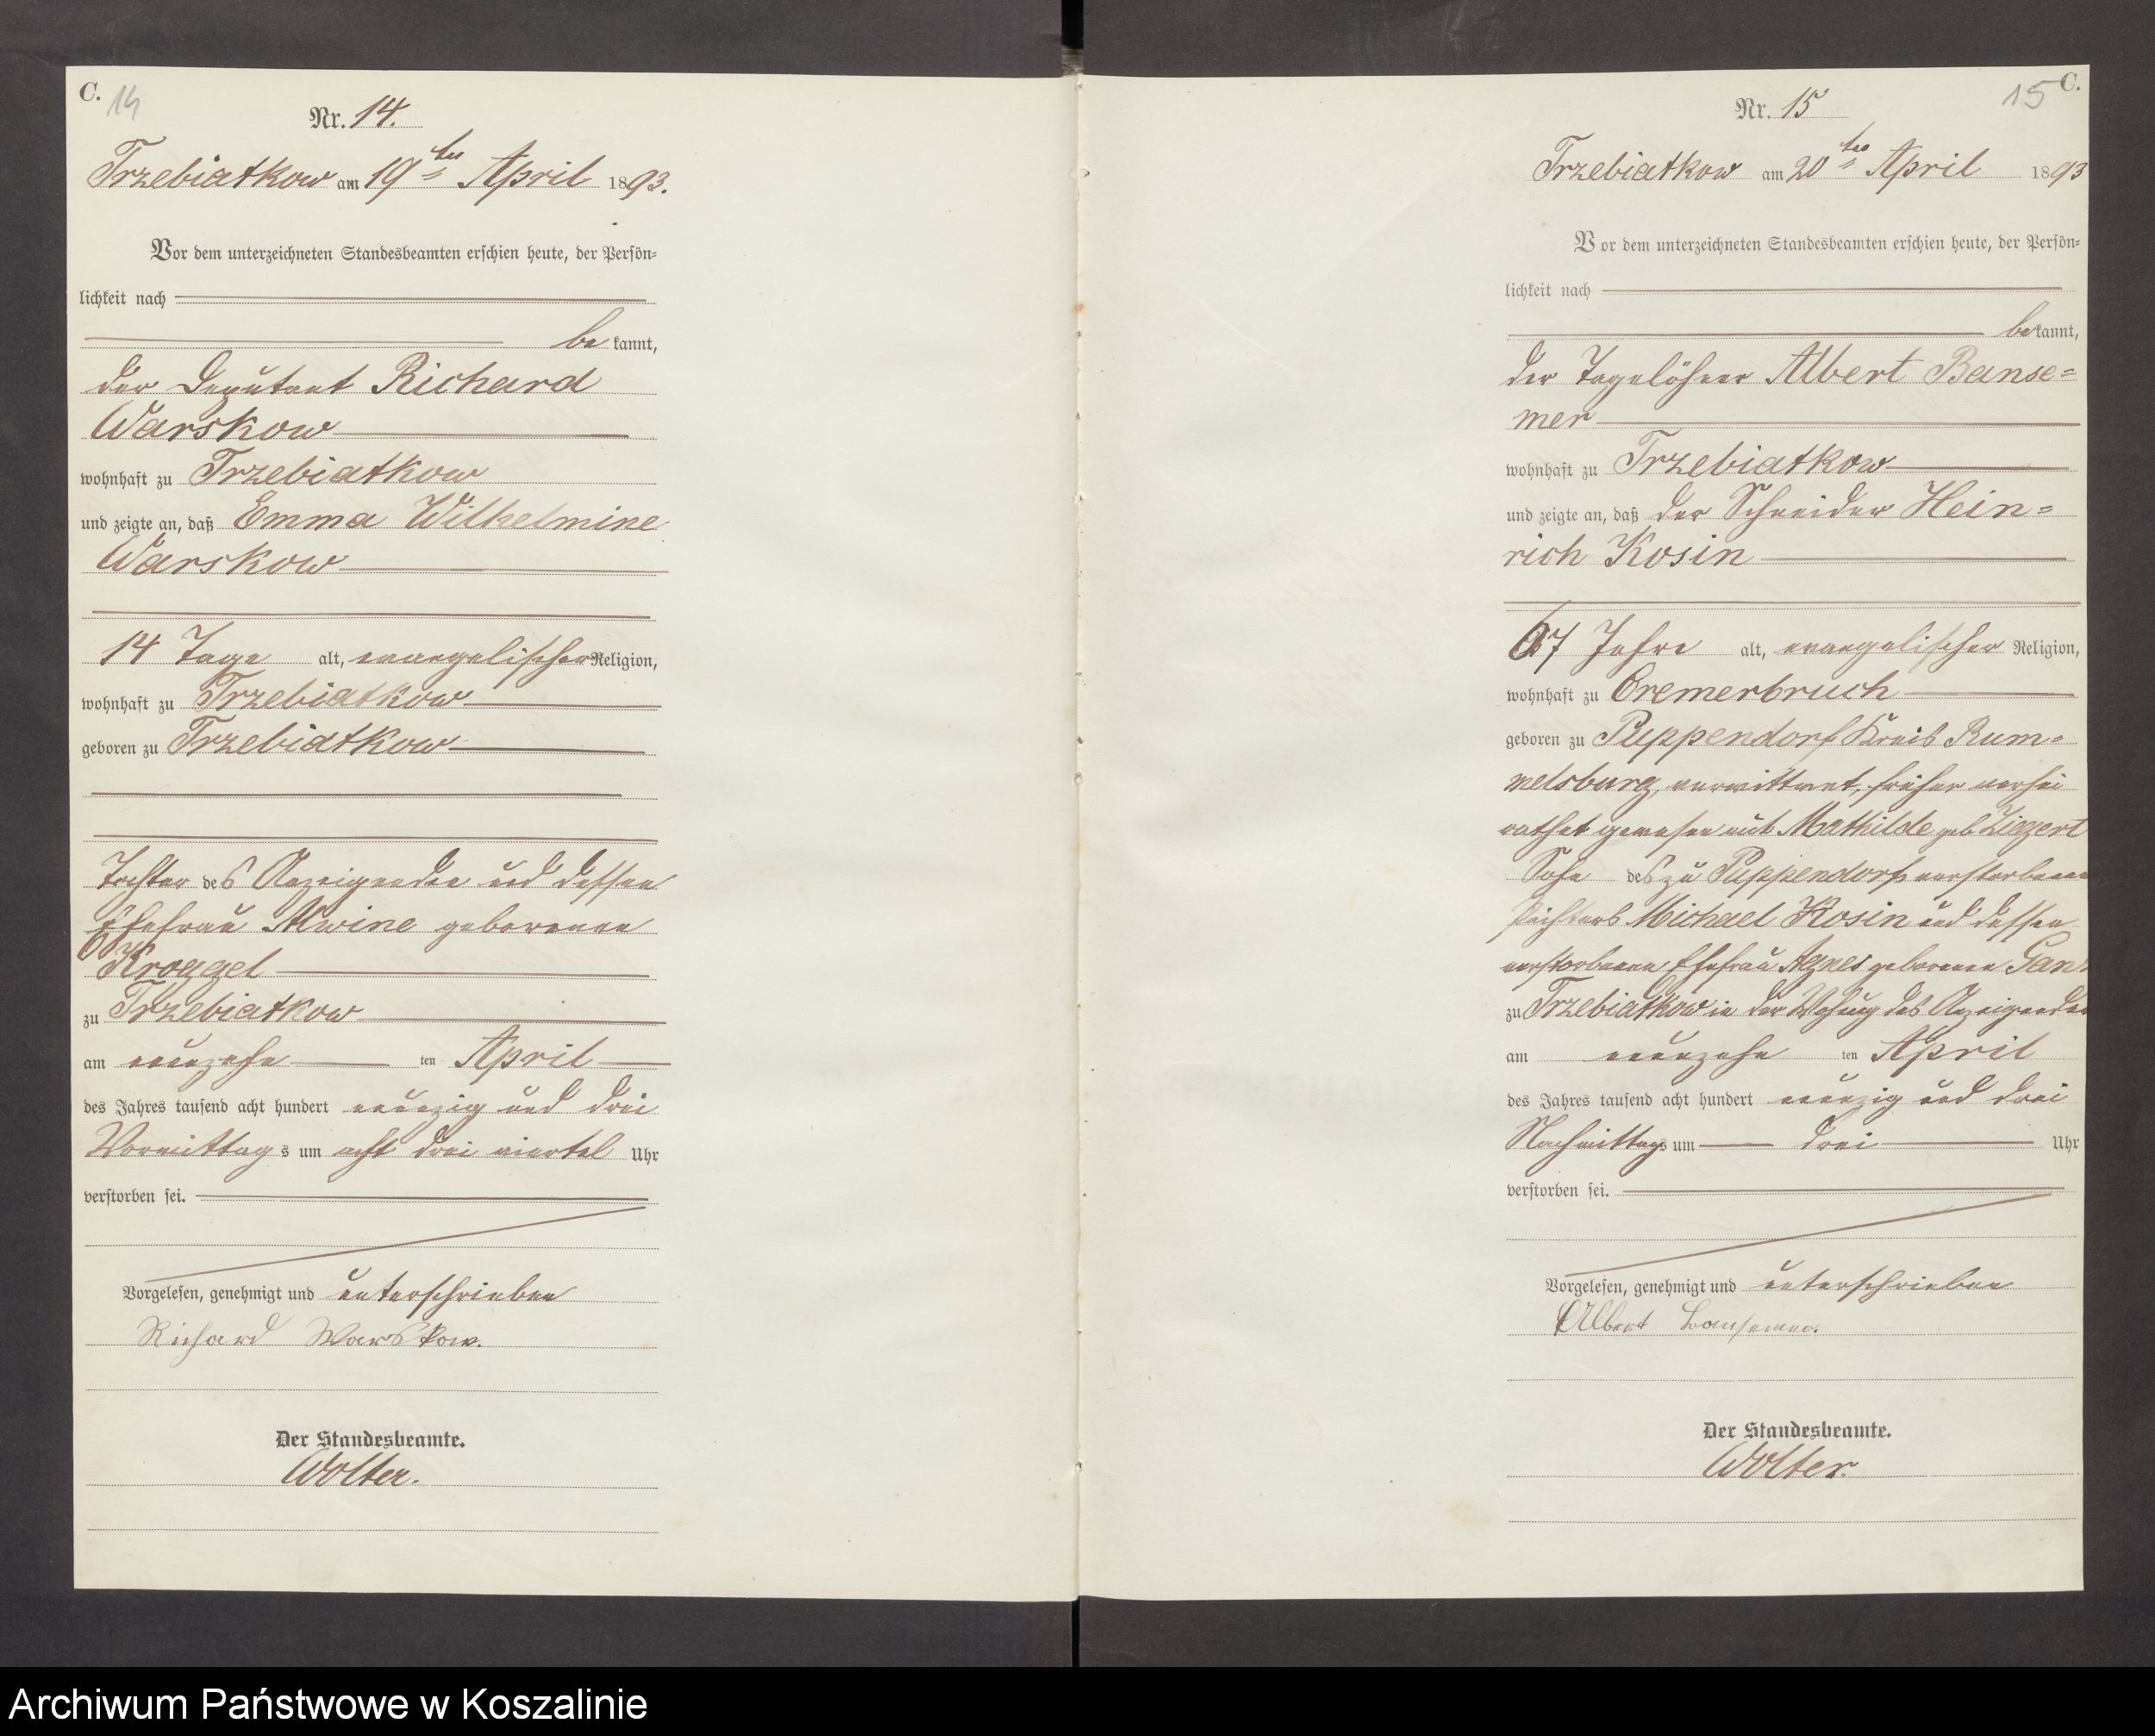 C. 14
Nr. 14.
Trzebiatkow am 19ten April 1893.
Vor dem unterzeichneten Standesbeamten erschien heute, der Persön-
lichkeit nach
be kannt,
der Deputant Richard
Warskow
wohnhaft zu Trzebiatkow
und zeigte an, daß Emma Wilhelmine
Warskow
14 Tage alt, evangelischer Religion,
wohnhaft zu Trzebiatkow
geboren zu Trzebiatkow
Tochter des Anzeigenden und dessen
Ehefrau Alwine geborenen
Kroggel
zu Trzebiatkow
am neunzehn ten April
des Jahres tausend acht hundert neunzig und drei
Vormittag s um acht drei viertel Uhr
verstorben sei.
Vorgelesen, genehmigt und unterschrieben
Richard Warskow.
Der Standesbeamte.
Wolter.
15 C.
Nr. 15
Trzebiatkow am 20ten April 1893
Vor dem unterzeichneten Standesbeamten erschien heute, der Persön-
lichkeit nach
be kannt,
der Tagelöhner Albert Banse=
mer
wohnhaft zu Trzebiatkow
und zeigte an, daß der Schneider Hein=
rich Kosin
67 Jahre alt, evangelischer Religion,
wohnhaft zu Cremerbruch
geboren zu Puppendorf Kreis Rum=
melsburg, verwittwet, früher verhei
rathet gewesen mit Mathilde geb.
Sohn des zu Puppendorf verstorbenen
Michael Kosin und dessen
verstorbenen Ehefrau Agnes geborenen
zu Trzebiatkow in der Wohnung des Anzeigenden
am neunzehn ten April
des Jahres tausend acht hundert neunzig und drei
Nachmittags um drei Uhr
verstorben sei.
Vorgelesen, genehmigt und unterschrieben
Albert Bansemer.
Der Standesbeamte.
Wolter.
Archiwum Państwowe w Koszalinie